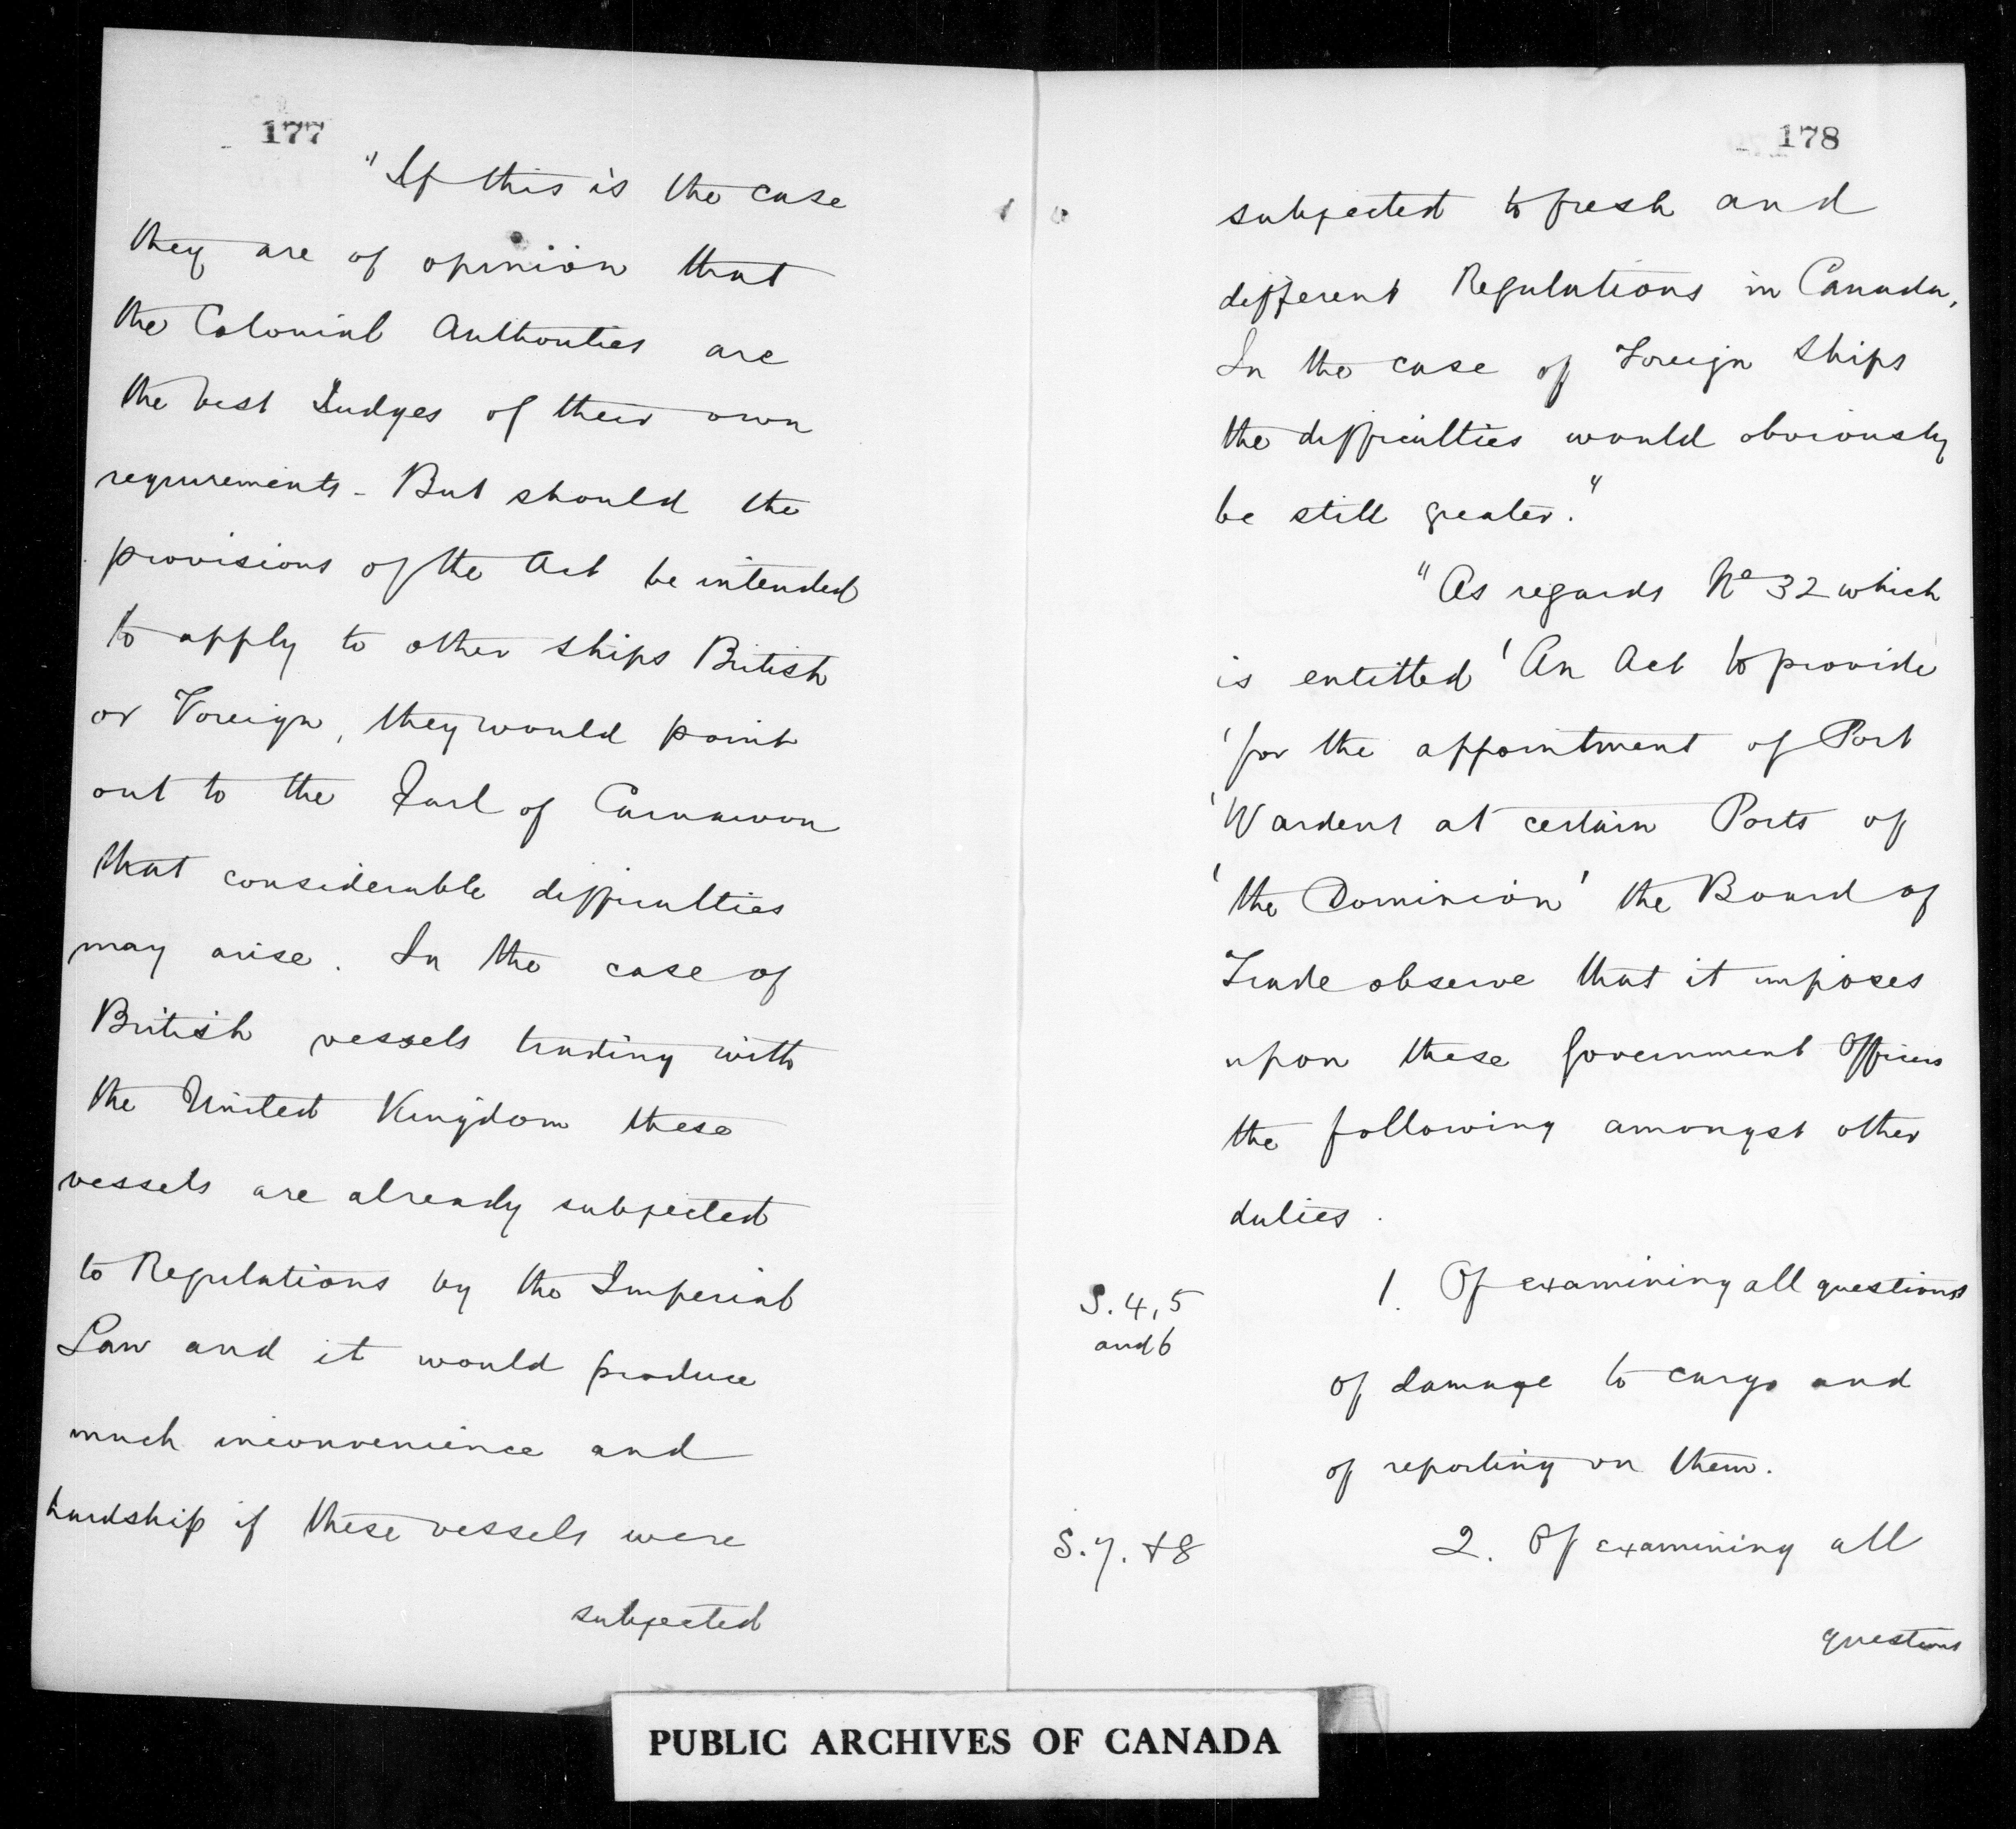 177
"If this is the case
they are of opinion that
the Colonial Authorities are
the best Judges of their own
requirements - But should the
provisions of the Act be intended
to apply to other ships British
or Foreign, they would point
out to the Earl of Carnarvon
that considerable difficulties
may arise. In the case of
British vessels trading with
the United Kingdom these
vessels are already subjected
to Regulations by the Imperial
Law and it would produce
much inconvenience and
hardship if these vessels were
subjected
178
subjected to fresh and
different Regulations in Canada.
In the case of Foreign Ships
the difficulties would obviously
be still greater."
"As regards No 32 which
is entitled 'An Act to provide
'for the appointment of Port
'Wardens at certain Ports of
'the Dominion' the Board of
Trade observe that it imposes
upon these Government Officers
the following amongst other
duties.
S. 4, 5
and 6
1. Of examining all questions
of damage to cargo and
of reporting on them.
S. 7. & 8
2. Of examining all
questions
PUBLIC ARCHIVES OF CANADA